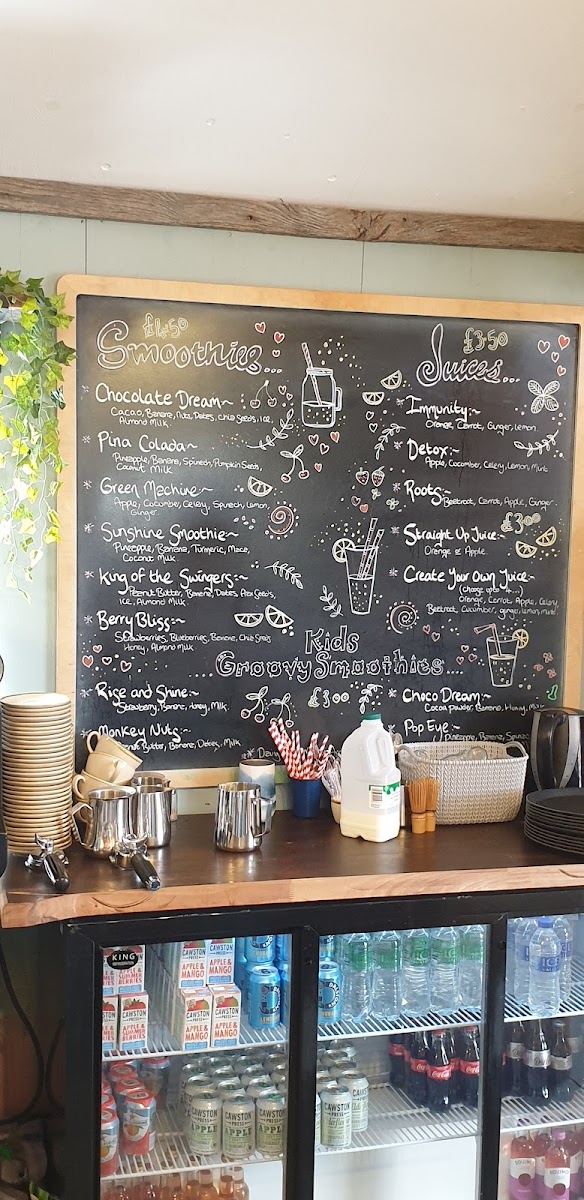 £4.50
Smoothies...
Chocolate Dream~
Cacao, Banana, Nuts, Dates, Chia Seeds, Ice,
Almond Milk.
Pina Colada~
Pineapple, Banana, Spinach, Pumpkin Seeds,
Coconut Milk
Green Machine~
Apple, Cucumber, Celery, Spinach, Lemon,
Ginger
Sunshine Smoothie~
Pineapple, Banana, Turmeric, Maca,
Coconut Milk
King of the Swingers~
Peanut Butter, Banana, Dates, Flax Seeds,
Ice, Almond Milk
Berry Bliss~
Strawberries, Blueberries, Banana, Chia Seeds
Honey, Almond Milk
£3.50
Juices...
Immunity~
Orange, Carrot, Ginger, Lemon.
Detox~
Apple, Cocomber, Celery, Lemon, Mint
Roots~
Beetroot, Carrot, Apple, Ginger
Straight Up Juice~ £3.00
Orange or Apple
Create Your Own Juice~
Orange, Carrot, Apple, Celery,
Beetroot, Cucumber, ginger, lemon, mint
Kids
Groovy Smoothies....
£3.00
Rise and Shine~
Strawberry, Banana, Honey, Milk
Monkey Nuts~
Peanut Butter, Banana, Dates, Milk
Choco Dream~
Cocoa powder, Banana, Honey, Milk
Pop Eye~
Pineapple, Banana, Spinach
KING
CAWSTON
PRESS
APPLE &
MANGO
CAWSTON
PRESS
APPLE &
SUMMER
BERRIES
CAWSTON
PRESS
APPLE &
MANGO
CAWSTON
APPLE
Coca-Cola